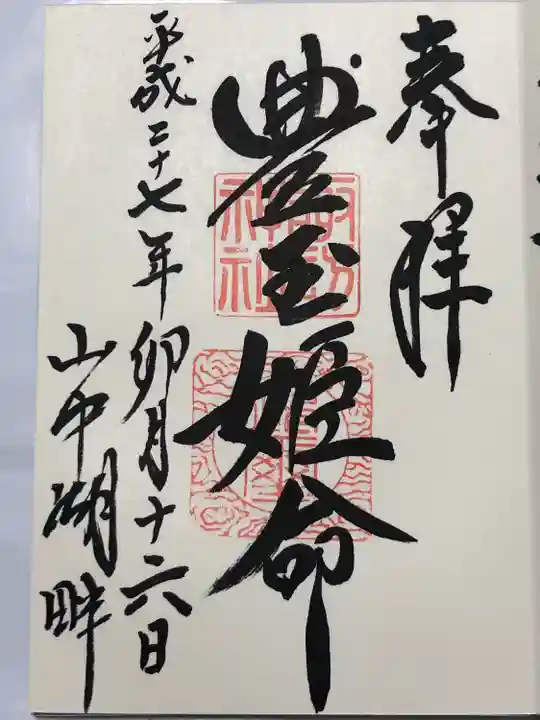 奉拝
豊玉姫命
平成二十七年 卯月十六日
山中湖畔